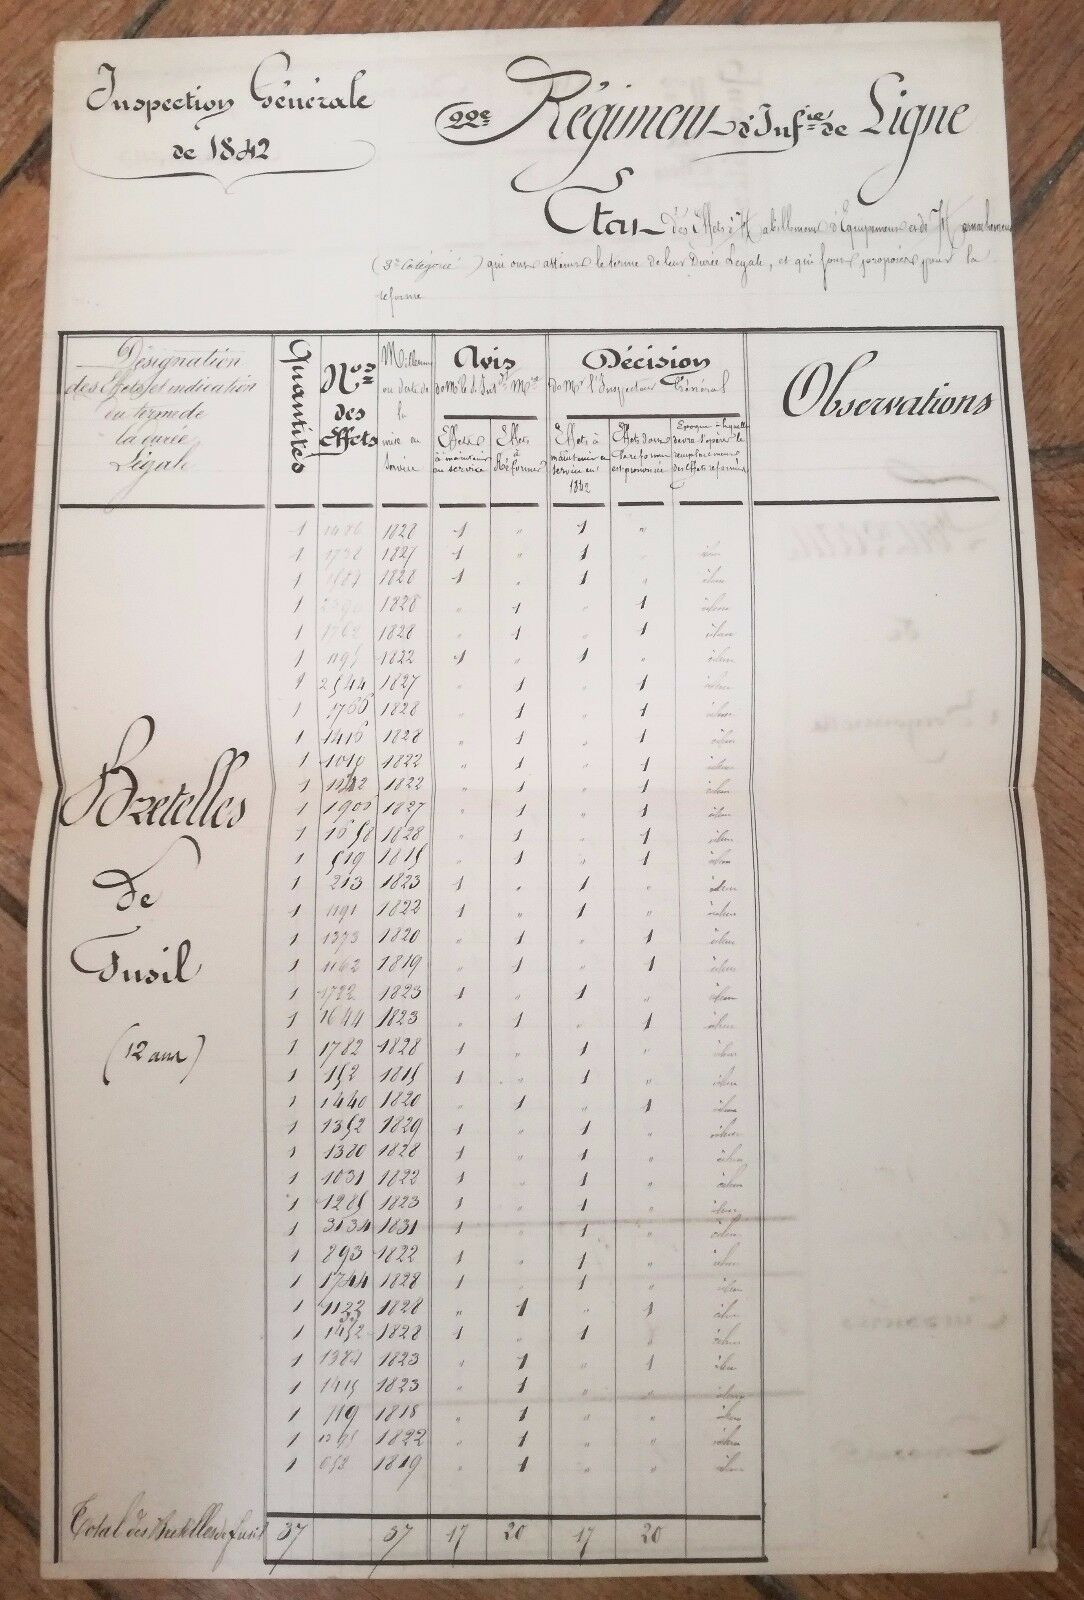 Inspection Générale
de 1842
22e Régiment d'Infie de Ligne
Etat des Effets d'Habillement d'Equipement et de Harnachement
(3e Catégorie) qui ont atteint le terme de leur Durée Légale, et qui sont proposés pour la
réforme
Désignation
des Effets et indication
du terme de
la durée
Légale
Quantités
Nos
des
Effets
Millesime
ou date de
la
mise en
Service
Avis
Effets
à maintenir
au service
Effets
à
Réformer
Décision
De Mr l'Inspecteur Général
Effets à
maintenir en
service en
1842
Effets dont
la reforme
est prononcée
Epoque à laquelle
devra s'opérer le
remplacement
des Effets réformés
Observations
Bretelles
de
Fusil
(12 ans)
1 1486 1828 1 " 1 "
1 1738 1827 1 1 idem
1 1828 1 " 1 " idem
1 1828 " 1 " 1 idem
1 1762 1828 " 1 " 1 idem
1 1195 1822 1 " 1 " idem
1 2544 1827 " 1 " 1 idem
1 1766 1828 " 1 " 1 idem
1 1416 1828 " 1 " 1 idem
1 1019 1822 " 1 " 1 idem
1 1822 " 1 " 1 idem
1 1900 1827 " 1 " 1 idem
1 1658 1828 " 1 " 1 idem
1 519 1815 " 1 " 1 idem
1 213 1823 1 " 1 " idem
1 1191 1822 1 " 1 " idem
1 1373 1820 " 1 " 1 idem
1 1162 1819 " 1 " 1 idem
1 1722 1823 1 " 1 " idem
1 1644 1823 " 1 " 1 idem
1 1782 1828 1 " 1 " idem
1 152 1815 1 " 1 " idem
1 1440 1820 " 1 " 1 idem
1 1352 1829 1 " 1 " idem
1 1380 1828 1 " 1 " idem
1 1031 1822 1 " 1 " idem
1 1285 1823 1 " 1 " idem
1 3134 1831 1 " 1 " idem
1 893 1822 1 " 1 " idem
1 1744 1828 1 " 1 " idem
1 1122 1828 " 1 " 1 idem
1 1452 1828 1 " 1 idem
1 1384 1823 " 1 " 1 idem
1 1415 1823 " 1 " " idem
1 119 1818 " 1 " " idem
1 1822 " 1 " " idem
1 1819 " 1 " " idem
Total des Bretelles de fusil 37 37 17 20 17 20